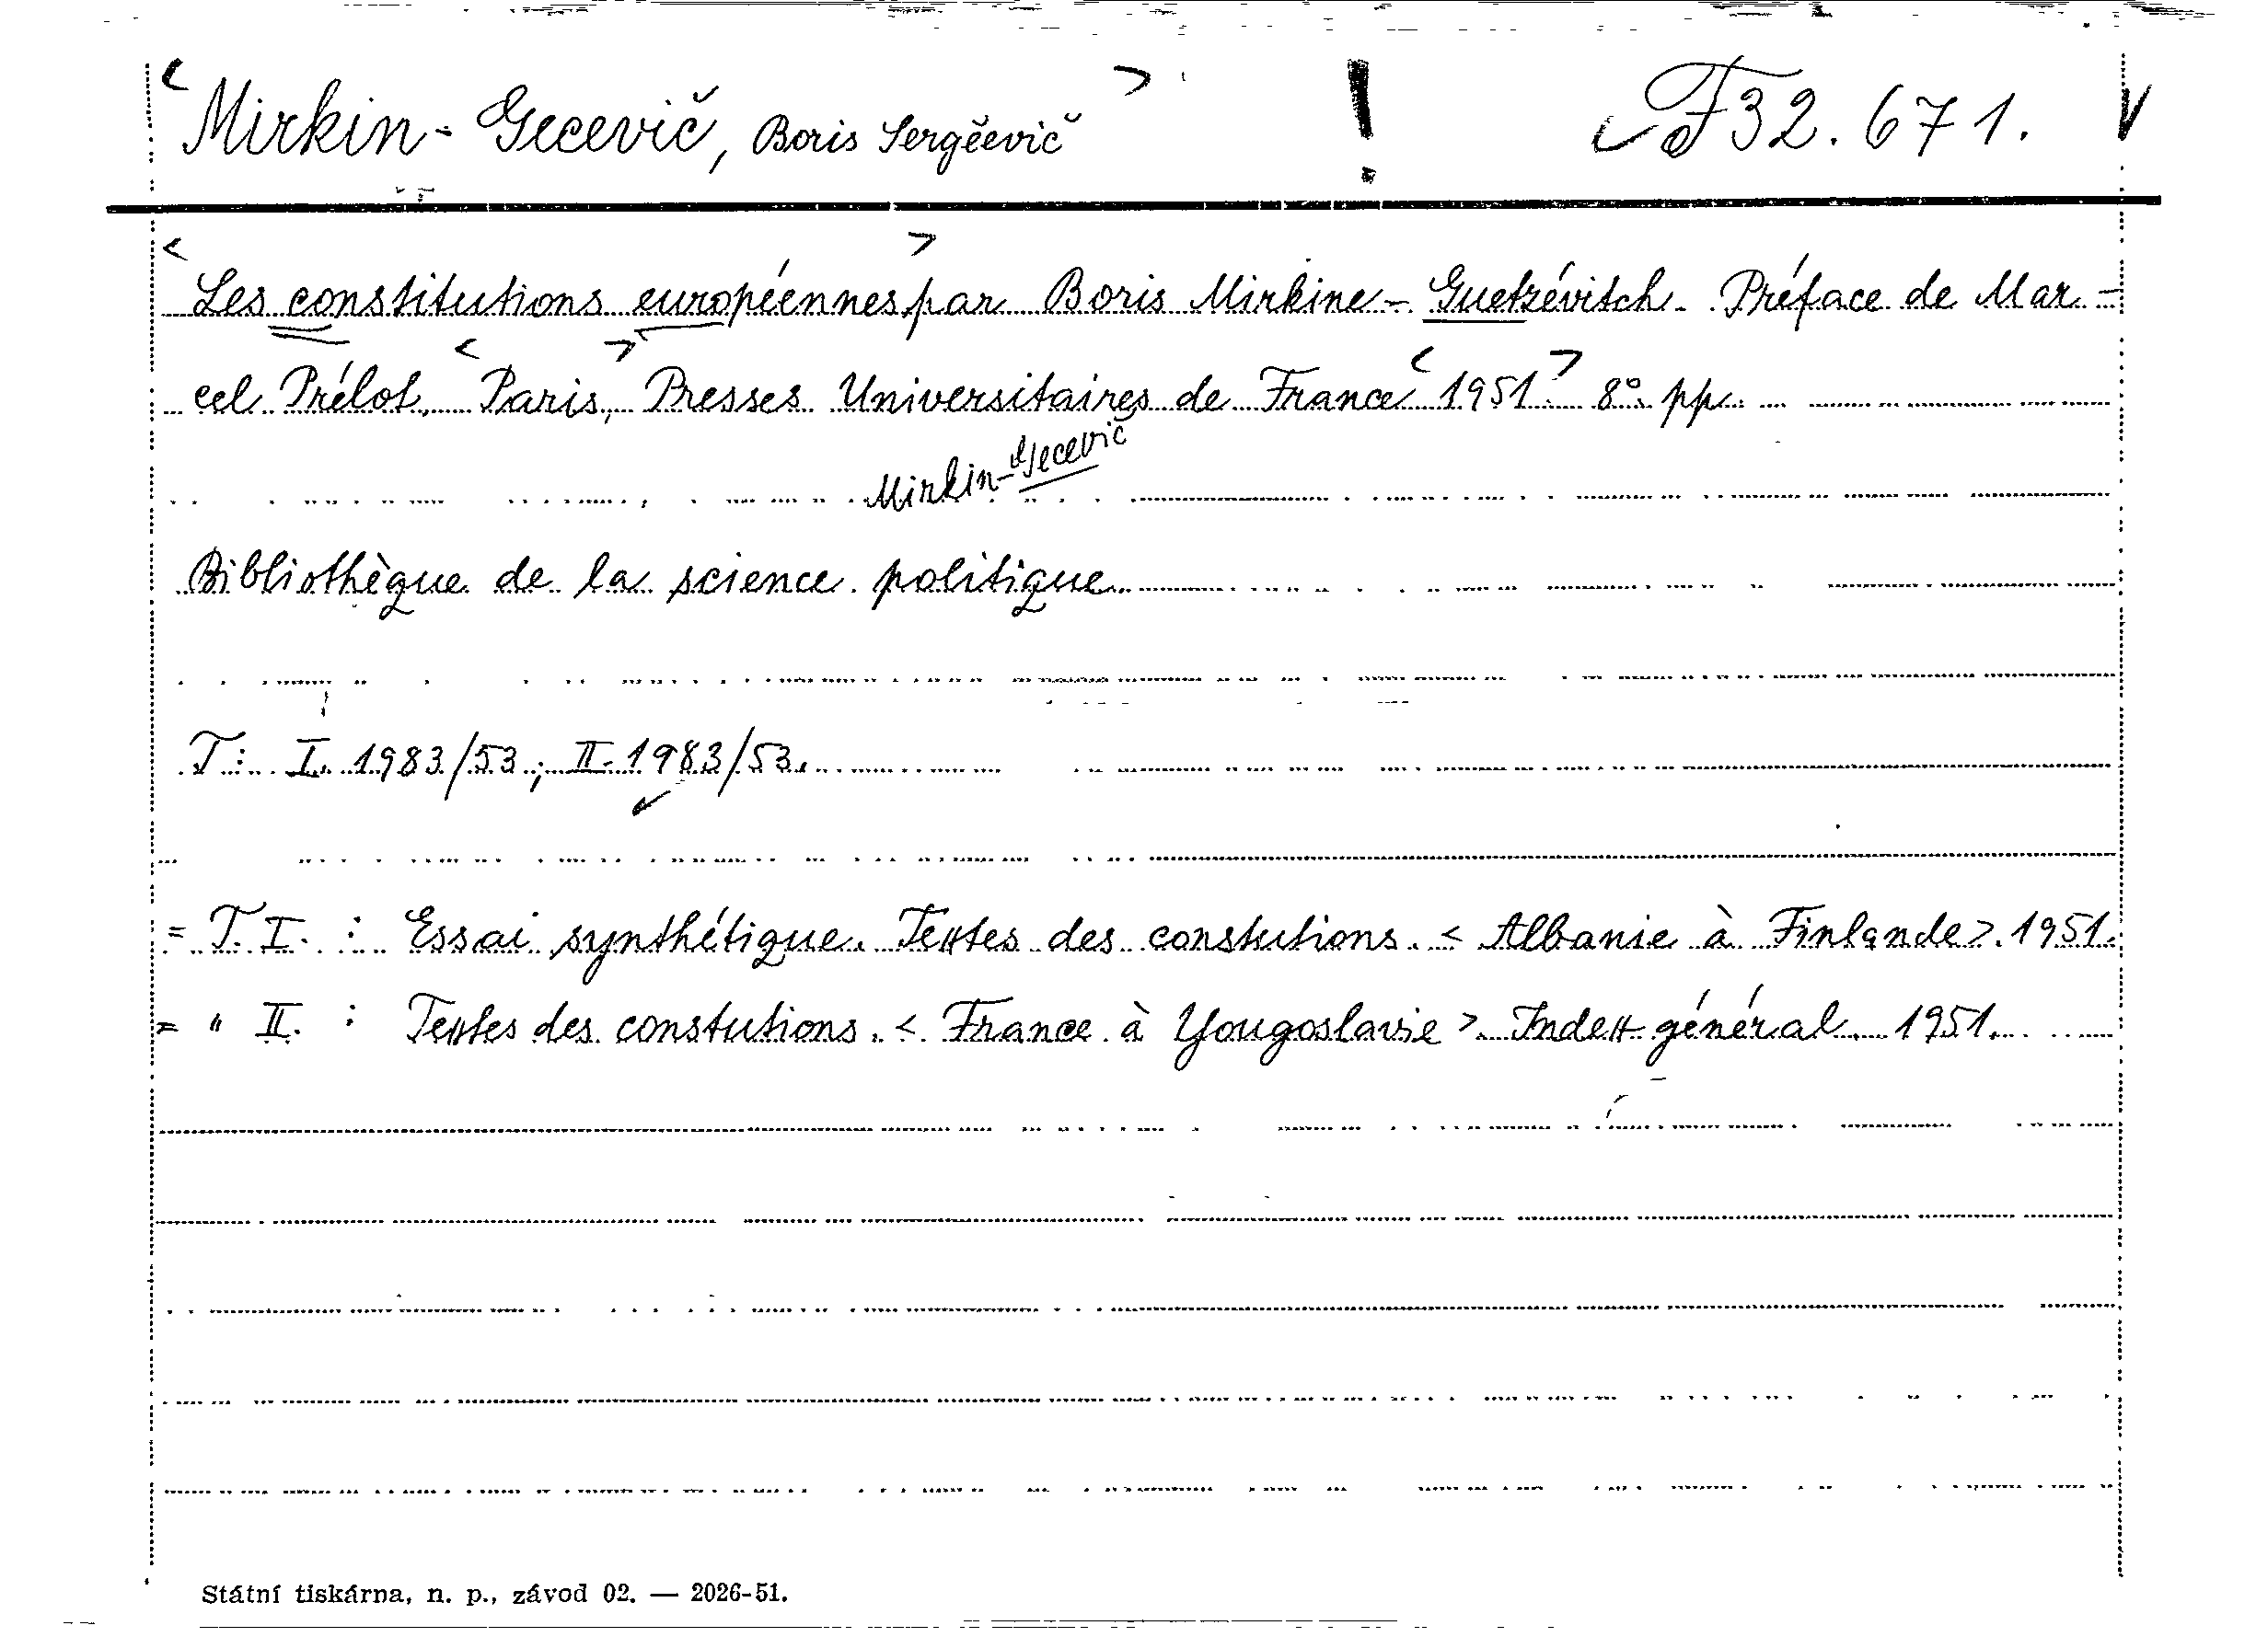 <Mirkin-Gecevič, Boris Sergěevič> ! F 32.671. V
<Les constitutions européennes> par Boris Mirkine-Guetzévitch. Préface de Mar-
cel Prélot. <Paris,> Presses Universitaires de France <1951.> 8°. pp.
Mirkin-Gecevič
Bibliothèque de la science politique.
T: I. 1983/53; II. 1983/53.
= T. I. : Essai synthétique. Textes des constutions. < Albanie à Finlande >. 1951.
= " II. : Textes des constutions. < France à Yougoslavie >. Index général. 1951.
Státní tiskárna, n. p., závod 02. — 2026-51.